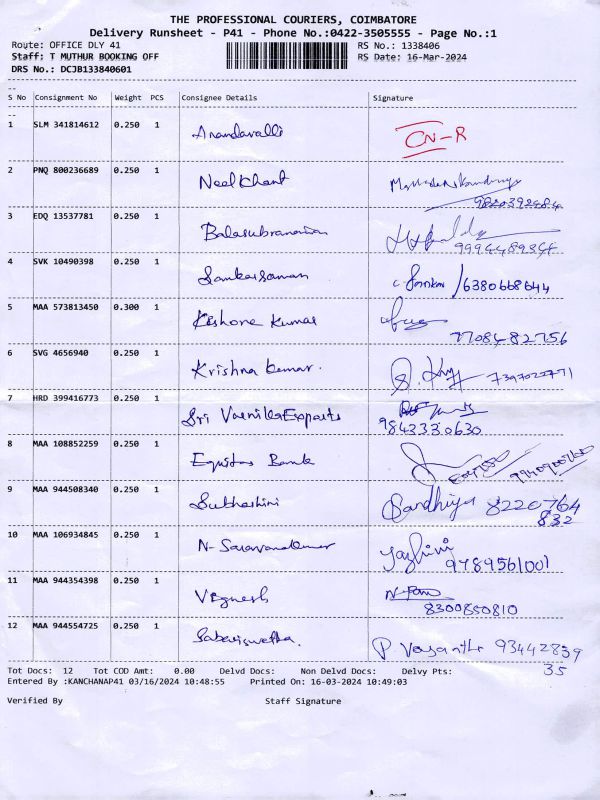 THE PROFESSIONAL COURIERS, COIMBATORE
Delivery Runsheet - P41 - Phone No.:0422-3505555 - Page No.:1
Route: OFFICE DLY 41 RS No.: 1338406
Staff: T MUTHUR BOOKING OFF RS Date: 16-Mar-2024
DRS No.: DCJB133840601
S No Consignment No Weight PCS Consignee Details Signature
1 SLM 341814612 0.250 1 Anandavalli CN-R
2 PNQ 800236689 0.250 1 Neelkhant
9820392484
3 EDQ 13537781 0.250 1 Balasubramanian
9994489344
4 SVK 10490398 0.250 1 Sankarsaman c. Sankar /6380668644
5 MAA 573813450 0.300 1 Kishore Kumar
7708482756
6 SVG 4656940 0.250 1 Krishna kumar.
7 HRD 399416773 0.250 1 Sri Varnika Exports
9843330630
8 MAA 108852259 0.250 1 Equitas Bank
9 MAA 944508340 0.250 1 Subhashini Sandhiya 8220764
832
10 MAA 106934845 0.250 1 N- Saravanakumar Yazhini
9789561001
11 MAA 944354398 0.250 1 Vignesh
8300850810
12 MAA 944554725 0.250 1 Sabariswetha. P Vasanth 93442839
35
Tot Docs: 12 Tot COD Amt: 0.00 Delvd Docs: Non Delvd Docs: Delvy Pts:
Entered By :KANCHANAP41 03/16/2024 10:48:55 Printed On: 16-03-2024 10:49:03
Verified By Staff Signature